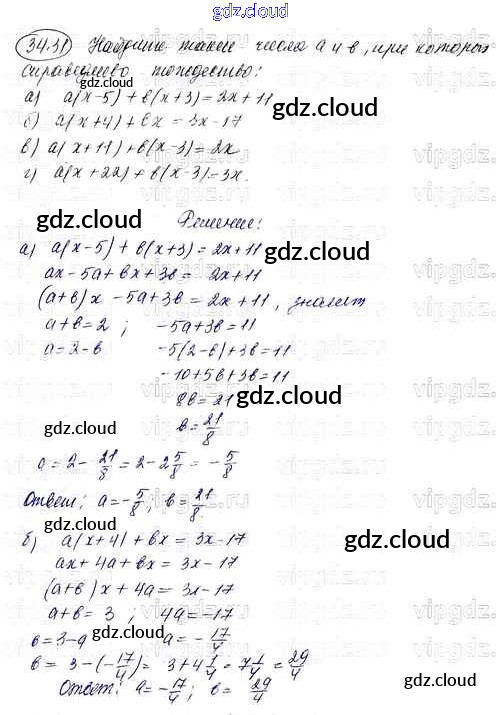 gdz.cloud
34.31) Найдите такие числа a и b, при которых
справедливо тождество:
а) a(x-5)+b(x+3)=2x+11
б) a(x+4)+bx=3x-17
в) a(x+11)+b(x-3)=2x
г) a(x+22)+b(x-3)=3x.
gdz.cloud
gdz.cloud
Решение:
а) a(x-5)+b(x+3)=2x+11
gdz.cloud
ax-5a+bx+3b=2x+11
(a+b)x-5a+3b=2x+11, значит
a+b=2; -5a+3b=11
a=2-b -5(2-b)+3b=11
-10+5b+3b=11
8b=21
gdz.cloud
gdz.cloud
b=21/8
a=2-21/8=2-2 5/8=-5/8
gdz.cloud
Ответ: a=-5/8; b=21/8.
б) a(x+4)+bx=3x-17
gdz.cloud
ax+4a+bx=3x-17
(a+b)x+4a=3x-17
a+b=3; 4a=-17
gdz.cloud
b=3-a a=-17/4
b=3-(-17/4)=3+4 1/4=7 1/4=29/4
gdz.cloud
Ответ: a=-17/4; b=29/4